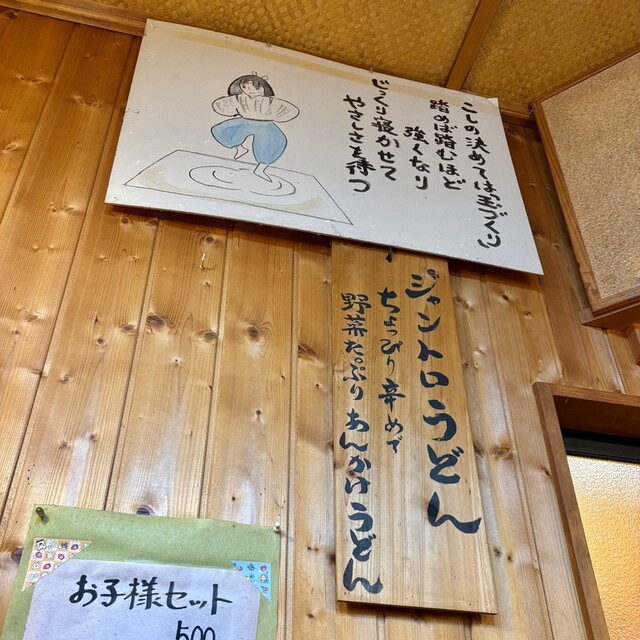 こしの決めては玉づくり
踏めば踏むほど
強くなり
じっくり寝かせて
やさしさを待つ
ジャントロうどん
ちょっぴり辛めで
野菜たっぷりあんかけうどん
お子様セット
500